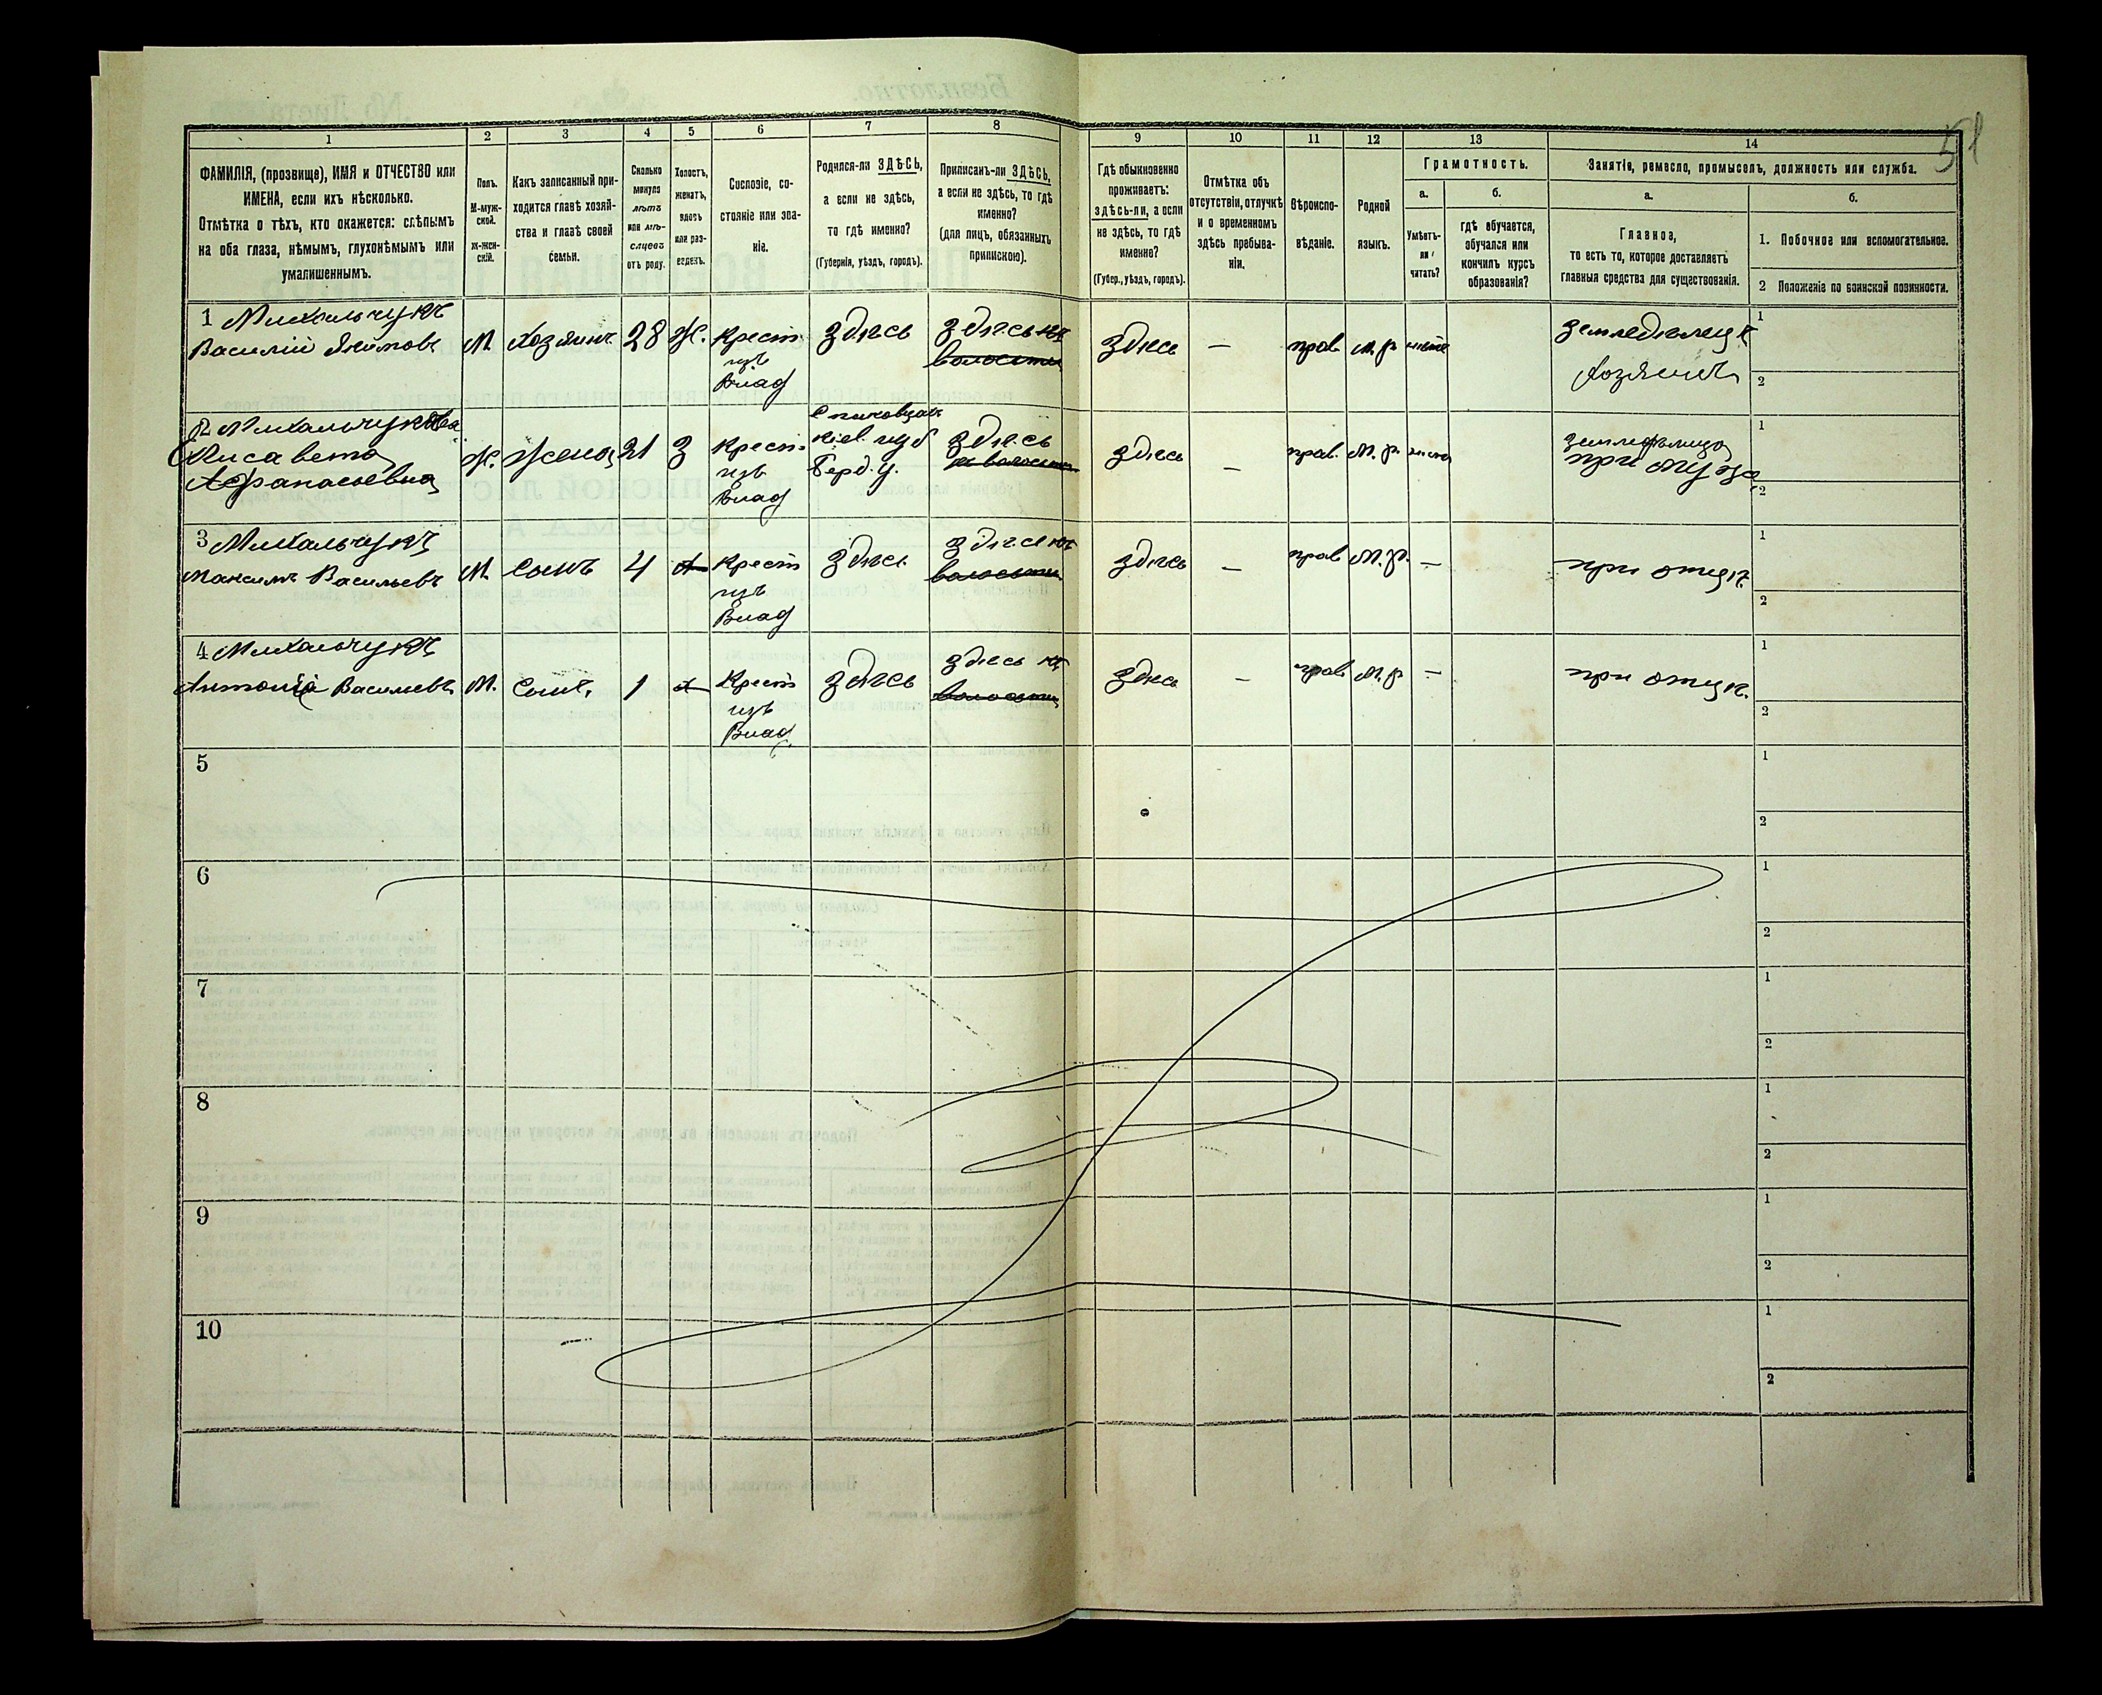 51
1
2
3
4
5
6
7
8
9
10
11
12
13
14
ФАМИЛІЯ, (прозвище), ИМЯ и ОТЧЕСТВО или
ИМЕНА, если ихъ нѣсколько.
Отмѣтка о тѣхъ, кто окажется: слѣпымъ
на оба глаза, нѣмымъ, глухонѣмымъ или
умалишеннымъ.
Полъ.
М-муж-
ской.
ж-жен-
скій.
Какъ записанный при-
ходится главѣ хозяй-
ства и главѣ своей
семьи.
Сколько
минуло
лѣтъ
или мѣ-
сяцевъ
отъ роду.
Холостъ,
женатъ,
вдовъ
или раз-
веденъ.
Сословіе, со-
стояніе или зва-
ніе.
Родился-ли ЗДѢСЬ,
а если не здѣсь,
то гдѣ именно?
(Губернія, уѣздъ, городъ).
Приписанъ-ли ЗДѢСЬ,
а если не здѣсь, то гдѣ
именно?
(для лицъ, обязанныхъ
припискою).
Гдѣ обыкновенно
проживаетъ:
здѣсь-ли, а если
не здѣсь, то гдѣ
именно?
(Губер., уѣздъ, городъ).
Отмѣтка объ
отсутствіи, отлучкѣ
и о временномъ
здѣсь пребыва-
ніи.
Вѣроиспо-
вѣданіе.
Родной
языкъ.
Грамотность.
а.
б.
Умѣетъ-
ли
читать?
гдѣ обучается,
обучался или
кончилъ курсъ
образованія?
Занятіе, ремесло, промыселъ, должность или служба.
а.
б.
Главное,
то есть то, которое доставляетъ
главныя средства для существованія.
1. Побочное или вспомогательное.
2 Положеніе по воинской повинности.
1 Михальчукъ
Василій Якимовъ
М. Хозяинъ 28 Ж. Крест
изъ
Влад
здѣсь
здѣсь
волости
здѣсь — прав м. р.
земледѣлецъ
Хозяинъ
1
2
2
Лисавета
Афанасіевна
Ж. Жена 21 З Крест
изъ
Влад
Кіев. губ
Берд. у.
здѣсь
здѣсь — прав. м. р.
при мужѣ
1
2
3 Михальчукъ
Максимъ Васильевъ
М. Сынъ 4 Х Крест
изъ
Влад
здѣсь
здѣсь
волости
здѣсь — прав м. р. —
при отцѣ
1
2
4 Михальчукъ
Антоній Васильевъ
М. Сынъ 1 Х Крест
изъ
Влад
здѣсь
здѣсь
волости
здѣсь — прав м. р. —
при отцѣ.
1
2
5
1
2
6
1
2
7
1
2
8
1
2
9
1
2
10
1
2